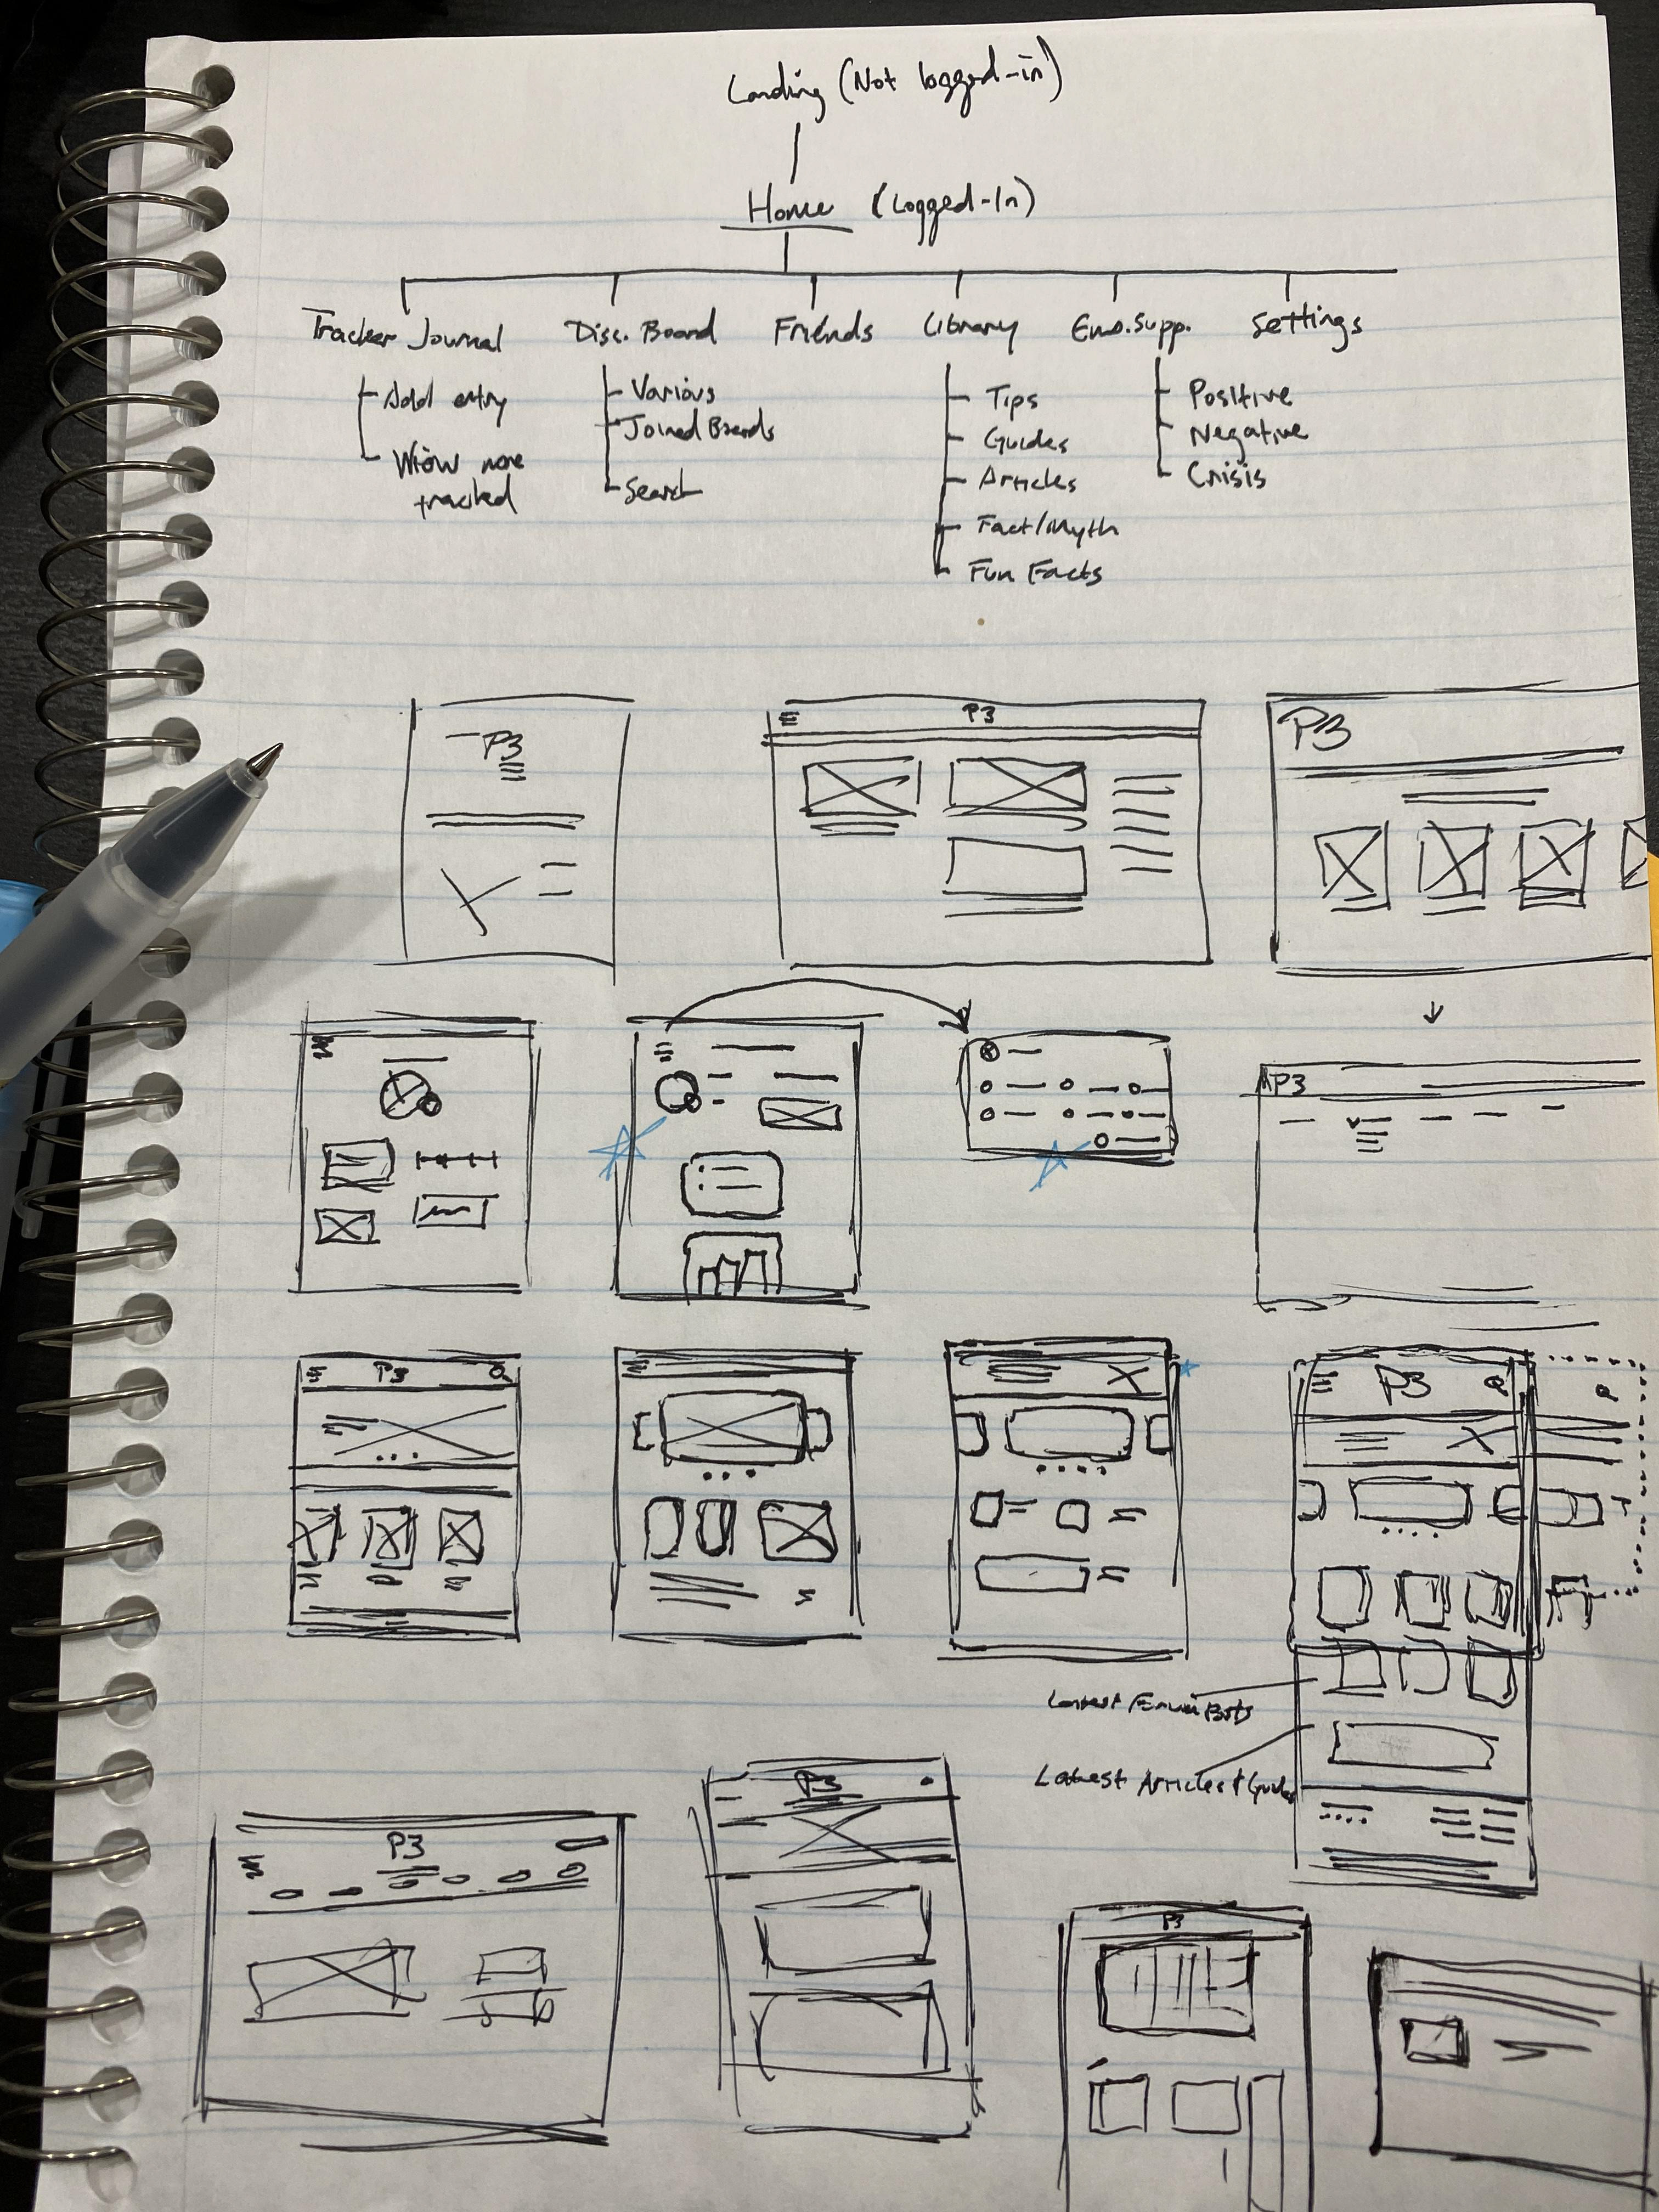 Landing (Not logged-in)
Home (Logged-In)
Tracker Journal
Disc. Board
Friends
Library
Emo. Supp.
Settings
Add entry
tracked
Various
Joined Boards
Search
Tips
Guides
Articles
Fact/Myth
Fun Facts
Positive
Negative
Crisis
P3
P3
P3
P3
P3
P3
Latest
Latest Articles &
P3
P3
P3